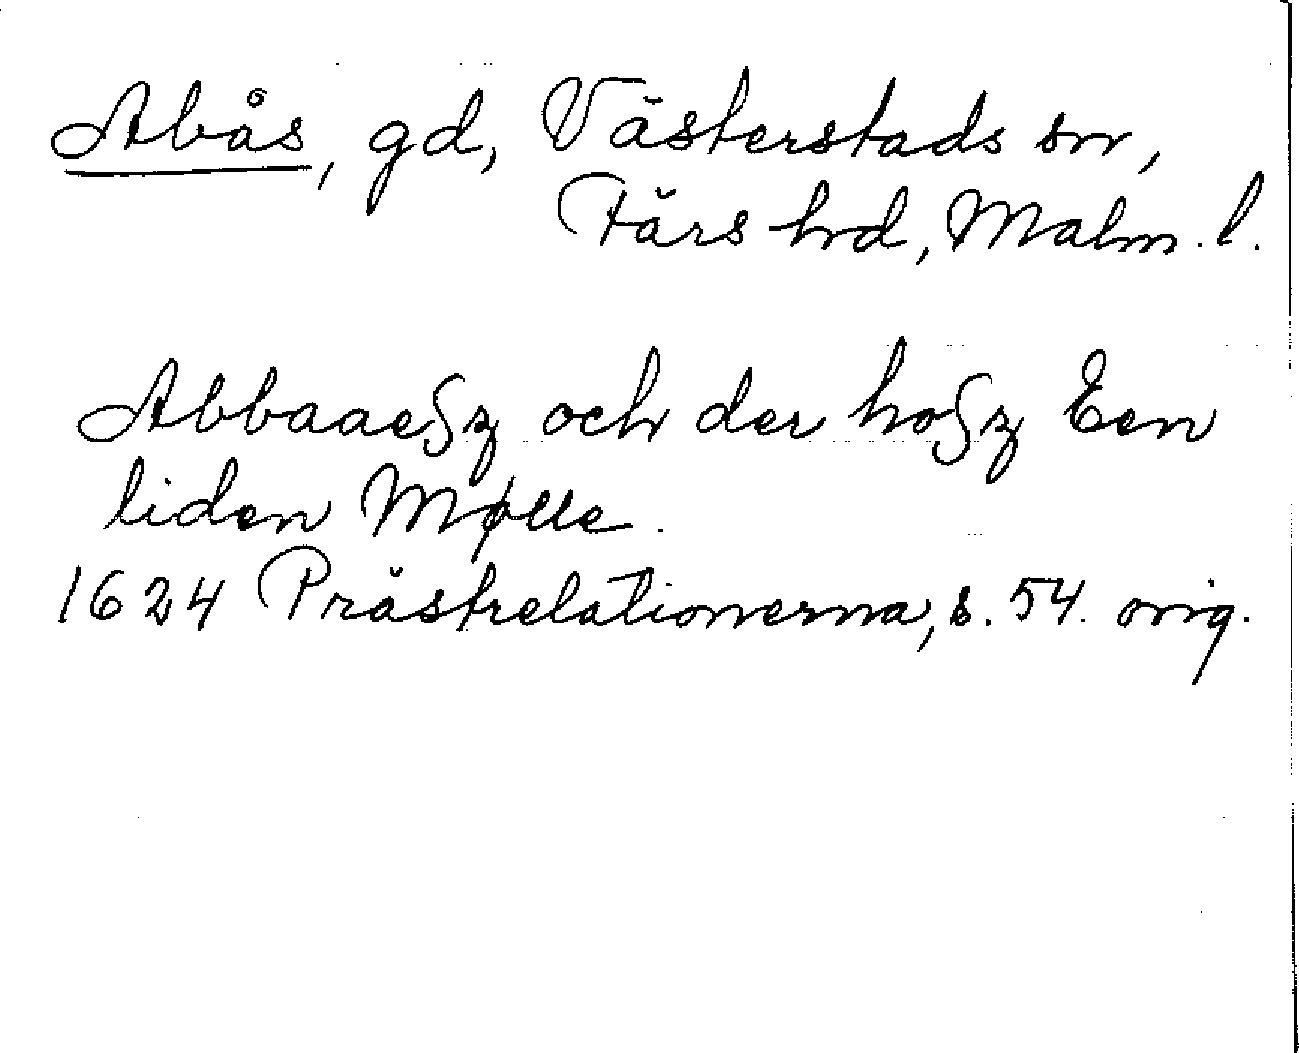 Abås, gd, Västerstads sn,
Färs hd, Malm. l.
Abbaaeſz och der hoſz Een
liden Mølle.
1624 Prästrelationerna, s. 54. orig.